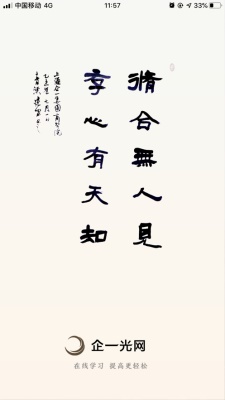 中国移动 4G 11:57 33%
脩合無人見
存心有天知
企一光网
在线学习 提高更轻松